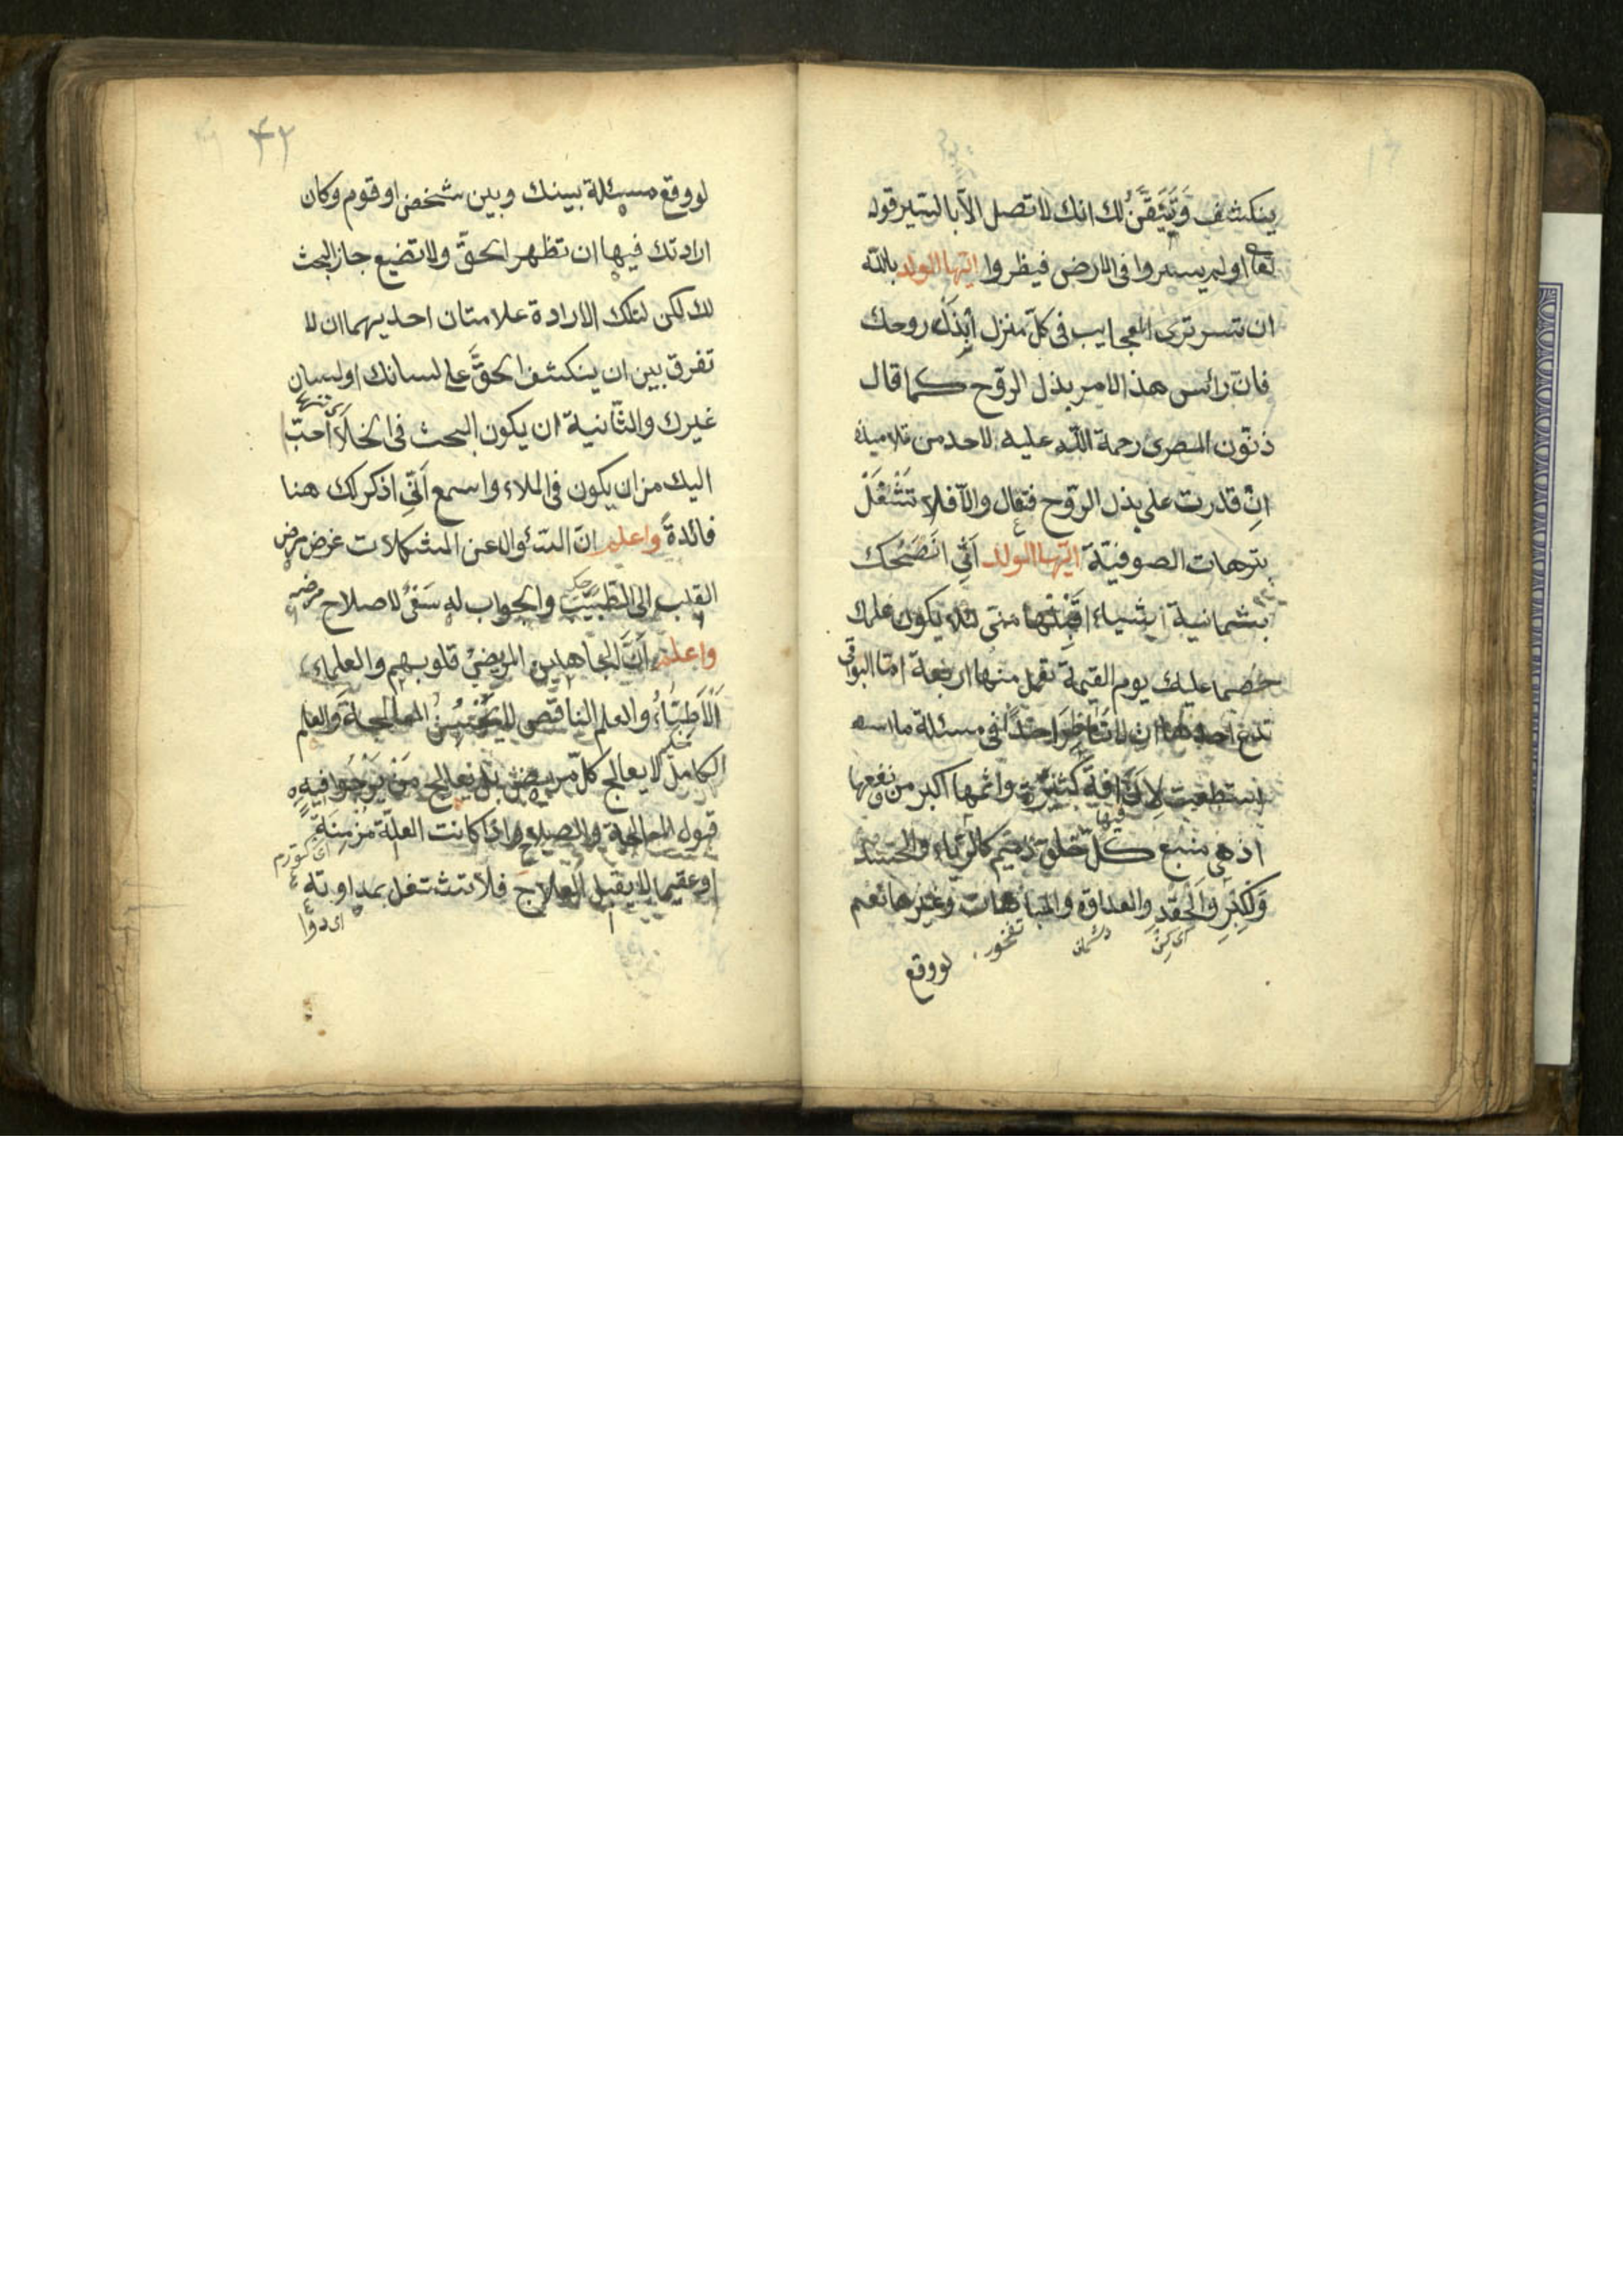 ينكشف وَتَيَقَّنُ لك انك لا تصل الّا بالسّير قوله
تعا اولم يسيروا فى الارض فينظروا ايّها الولد باللّه
ان تسر ترى العجايب فى كلّ منزل اُبْذُلْ روحك
فانّ رأس هذ الامر بذل الرّوح كما قال
ذنّون المصرى رحمة اللّه عليه لاحد من تلاميذه
انْ قدرت على بذل الرّوح فتعال والّا فلا تَشْتَغِلْ
بترهات الصوفيّة ايّها الولد اَنّى اَنْصَحُك
بثمانية اشياء اِقْبَلْها منّى لئلا يكون علمك
خصما عليك يوم القيمة تعمل منها اربعة امّا البواقى
تدع احدها ان لا تُناظِرَ احدًا فى مسئلة ما
استطعت لِاَنَّ فيها افةً كثيرةً واثمها اكبر من نفعها
اذ هى منبع كلّ خلق ذميم كالرّياء والحسد
وَلكِبْرِ وَالْحِقْدِ والعداوة والمباهات وغيرها نعم
تفخور
لووقع
۴۲
لووقع مسئلة بينك وبين شخص او قوم وكان
ارادتك فيها ان تظهر الحقّ ولا تضيع جاز البحث
لك لكن لتلك الارادة علامتان احديهما ان لا
تفرق بين ان ينكشف الحقَّ على لسانك او لسان
غيرك والثّانية ان يكون البحث فى الخلاَ اَحبّ
اليك من ان يكون فى الملاء واسمع اَنّى اذكر لك هنا
فائدةً واعلم انّ السّئوال عن المشكلات عرض مرض
القلب الى الطّبِيبِ والجواب له سَعْىٌ لاصلاح مرضه
واعلم اَنَّ الجاهلين المريضىْ قلوبهم والعلماء
اَلْاَطِبّاءُ والعلم النا قص لا يُحْسِنُ المعالجةَ والعلم
الكامل لا يعالج كلّ مريض بل يعالج مَنْ يَرْجُوا فيه
قبول المعالجة والصلاح واذا كانت العلّة مُزْمِنَةً
او عقيما لا يقبل العلاجَ فلا تشتغل بمداوته
اى دوا